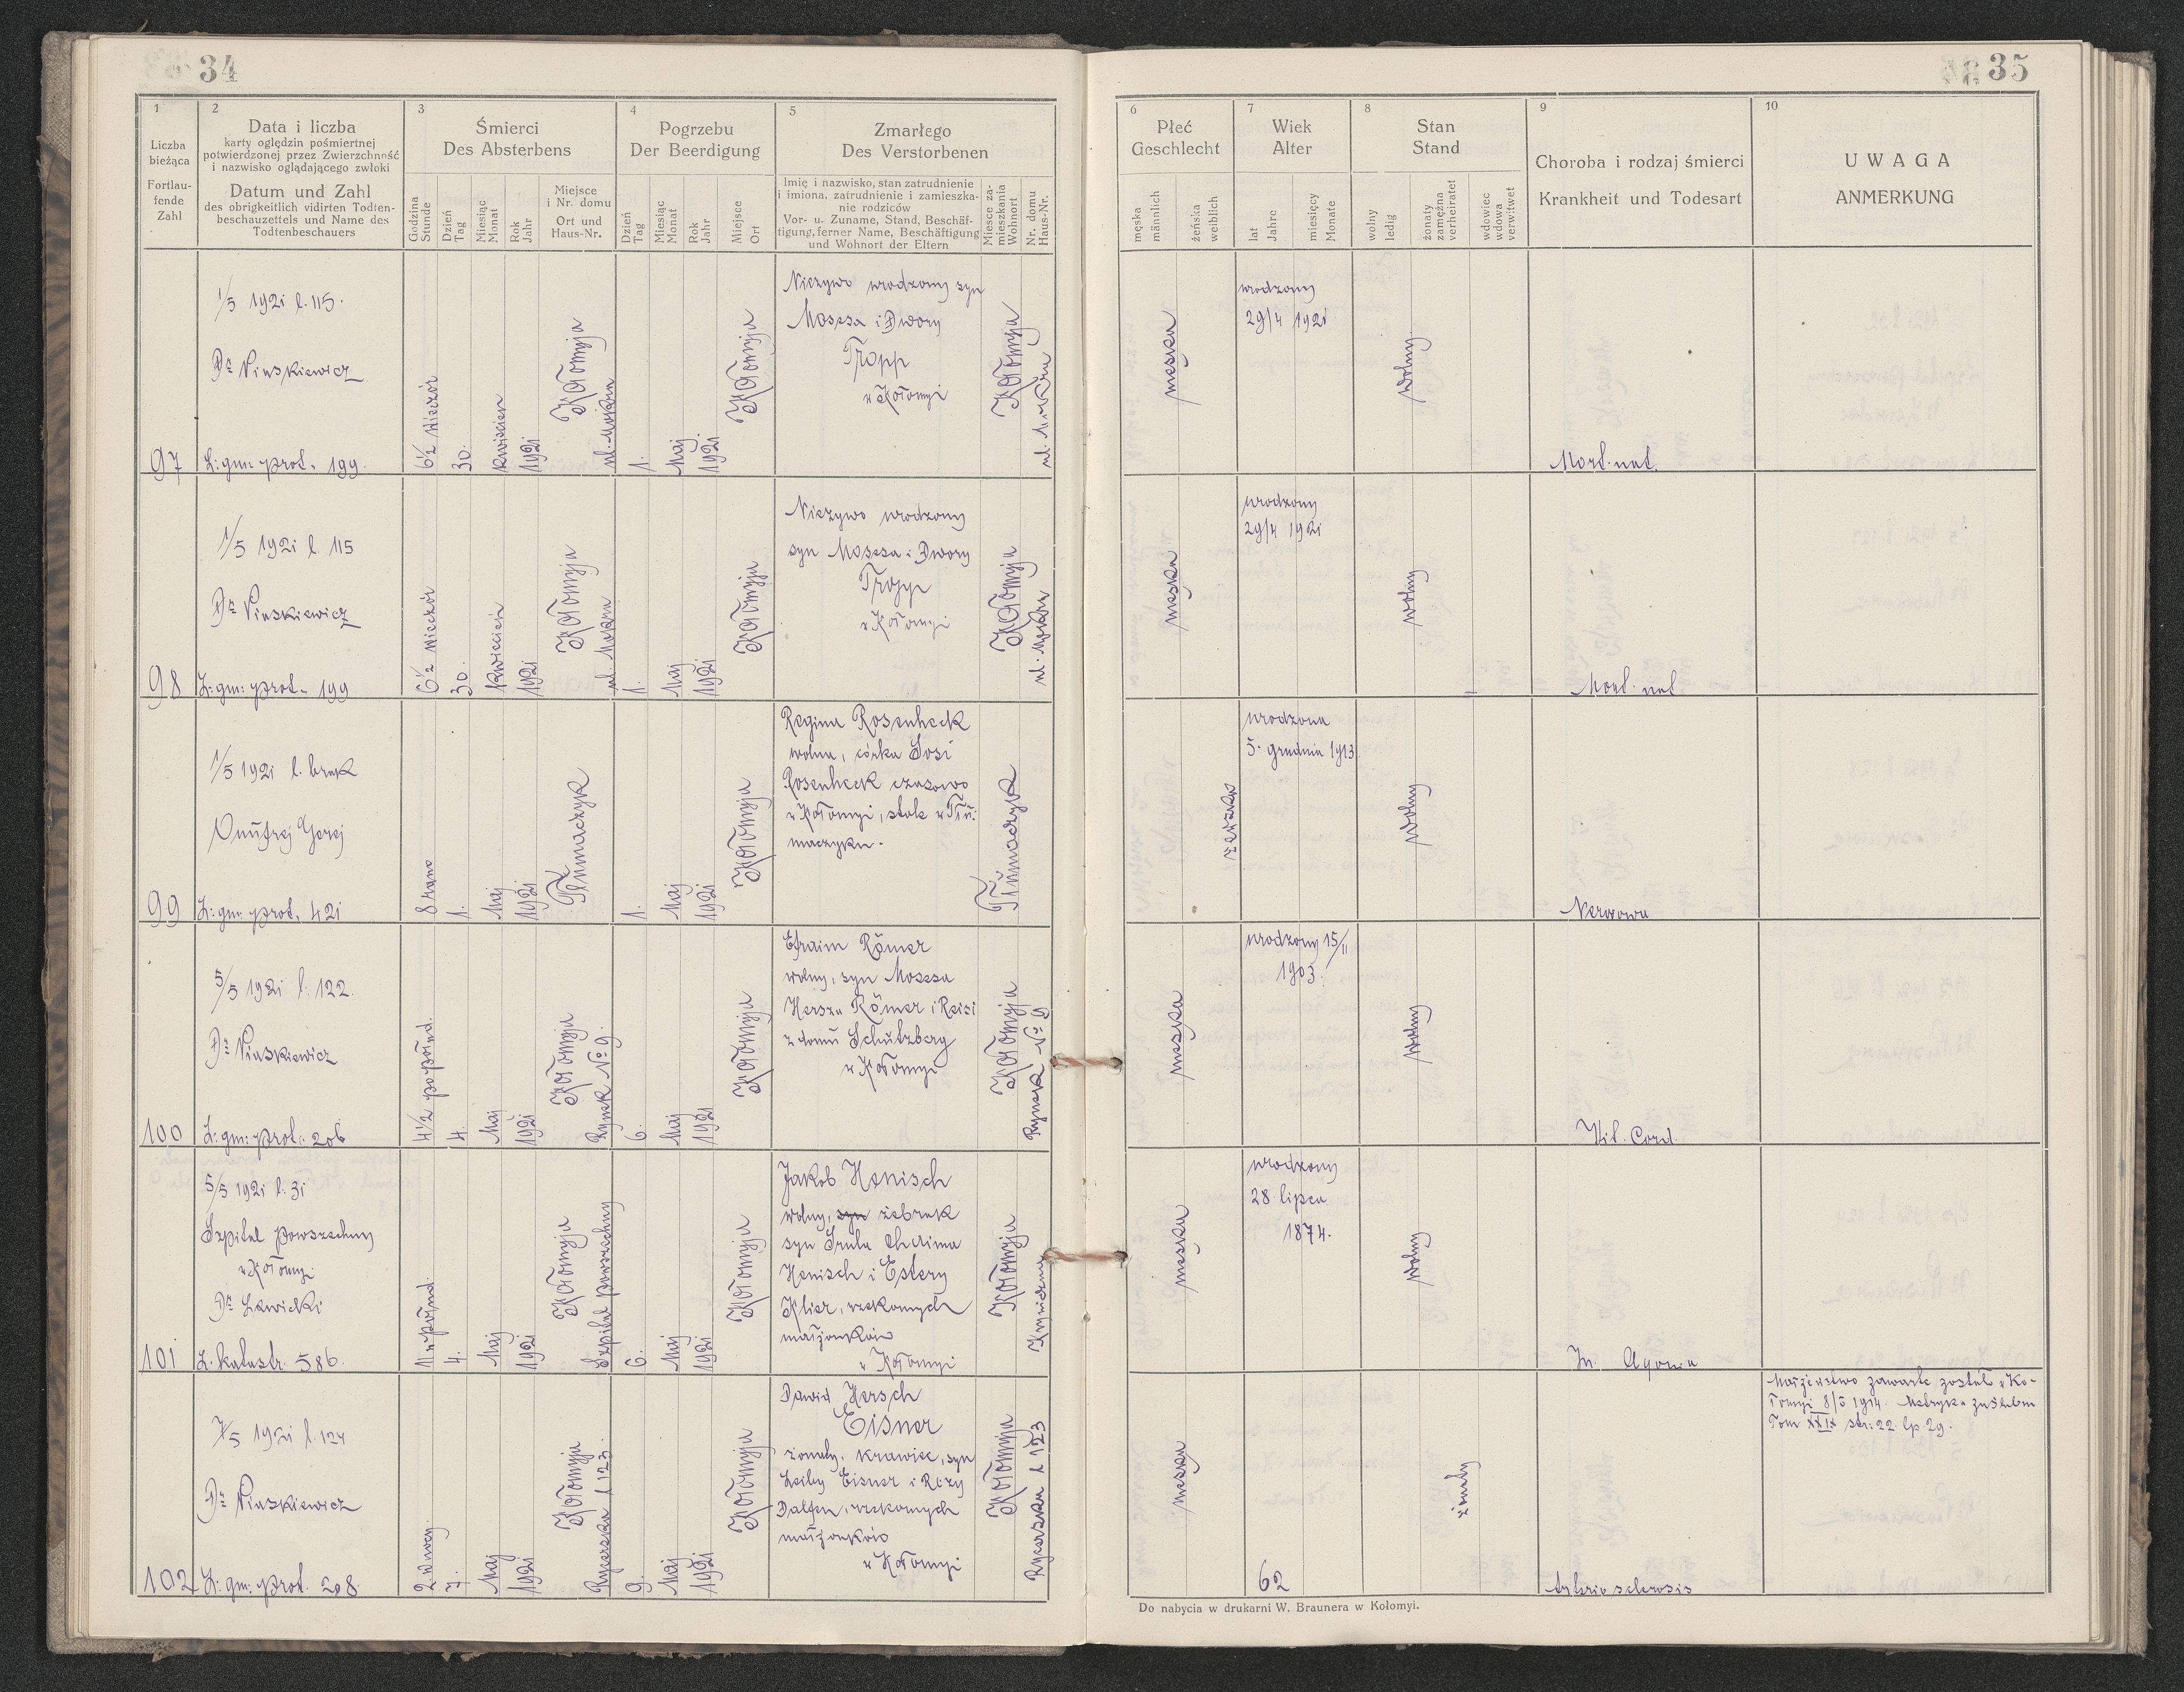 34
1
Liczba
bieżąca
Fortlau-
fende
Zahl
2
Data i liczba
karty oględzin pośmiertnej
potwierdzonej przez Zwierzchność
i nazwisko oglądającego zwłoki
Datum und Zahl
des obrigkeitlich vidirten Todten-
beschauzettels und Name des
Todtenbeschauers
3
Śmierci
Des Absterbens
Godzina
Stunde
Dzień
Tag
Miesiąc
Monat
Rok
Jahr
Miejsce
i Nr. domu
Ort und
Haus-Nr.
4
Pogrzebu
Der Beerdigung
Dzień
Tag
Miesiąc
Monat
Rok
Jahr
Miejsce
Ort
5
Zmarłego
Des Verstorbenen
Imię i nazwisko, stan zatrudnienie
i imiona, zatrudnienie i zamieszka-
nie rodziców
Vor- u. Zuname, Stand, Beschäf-
tigung, ferner Name, Beschäftigung
und Wohnort der Eltern
Miesce za-
mieszkania
Wohnort
Nr. domu
Haus-Nr.
97
1/5 1921 l. 115.
Dr Piaskiewicz
L: gm: prot. 199.
6 1/2 wieczór
30.
kwiecień
1921
Kołomyja
ul. Mokra
1.
Maj
1921
Kołomyja
Nieżywo urodzony syn
Mosesa i Dwory
Tropp
w Kołomyi
Kołomyja
ul. Mokra
98
1/5 1921 l. 115
Dr Piaskiewicz
L: gm: prot. 199
6 1/2 wieczór
30.
kwiecień
1921
Kołomyja
ul. Mokra
1.
Maj
1921
Kołomyja
Nieżywo urodzony
syn Mosesa i Dwory
Tropp
w Kołomyi
Kołomyja
ul. Mokra
99
1/5 1921 l. brak
Onufrej
L: gm: prot. 421
8 rano
1.
Maj
1921
Tłumaczyk
1.
Maj
1921
Kołomyja
Regina Rosenheck
wolna, córka Sosi
Rosenheck czasowo
w Kołomyi, stale w Tłu-
maczyku.
Tłumaczyk
100
5/5 1921 l: 122.
Dr Piaskiewicz
L: gm: prot: 206
4 1/2 popołud.
4.
Maj
1921
Kołomyja
Rynek No 9.
6.
Maj
1921
Kołomyja
Efraim Römer
wolny, syn Mosesa
Hersza Römer i Reisi
z domu Schutzberg
w Kołomyi
Kołomyja
Rynek No 9
101
5/5 1921 l: 31
Szpital powszechny
w Kołomyi
Dr Lewicki
L. katastr. 586.
4.
Maj
1921
Kołomyja
Szpital powszechny
6.
Maj
1921
Kołomyja
Jakob Henisch
wolny, syn żebrak
syn Srula Chaima
Henisch i Estery
Klier, rzekomych
małżonków
w Kołomyi
Kołomyja
102
7/5 1921 l. 124
Dr Piaskiewicz
L: gm: prot. 208.
2 w nocy.
7.
Maj
1921
Kołomyja
Rycerska l 123.
9.
Maj
1921
Kołomyja
Dawid Hersch
Eisner
żonaty, krawiec, syn
Leiby Eisner i Rózy
Dalfen, rzekomych
małżonków
w Kołomyi
Kołomyja
Rycerska l 123
35
6
Płeć
Geschlecht
męska
männlich
żeńska
weiblich
7
Wiek
Alter
lat
Jahre
miesięcy
Monate
8
Stan
Stand
wolny
ledig
żonaty
zamężna
verheiratet
wdowiec
wdowa
verwitwet
9
Choroba i rodzaj śmierci
Krankheit und Todesart
10
UWAGA
ANMERKUNG
męska
urodzony
29/4 1921
wolny
Mort. nat.
męska
urodzony
29/4 1921
wolny
Mort. nat
żeńska
urodzona
5. grudnia 1913
wolny
Nerwowa
męska
urodzony 15/II
1903.
wolny
Vit. Cord.
męska
urodzony
28 lipca
1874.
wolny
In Agonia
męska
62
żonaty
Arteriosclerosis
Małżeństwo zawarte zostało w Ko-
łomyi 8/5 1914. Metryka zaślubin
Tom XXIX str: 22 lp 29.
Do nabycia w drukarni W. Braunera w Kołomyi.